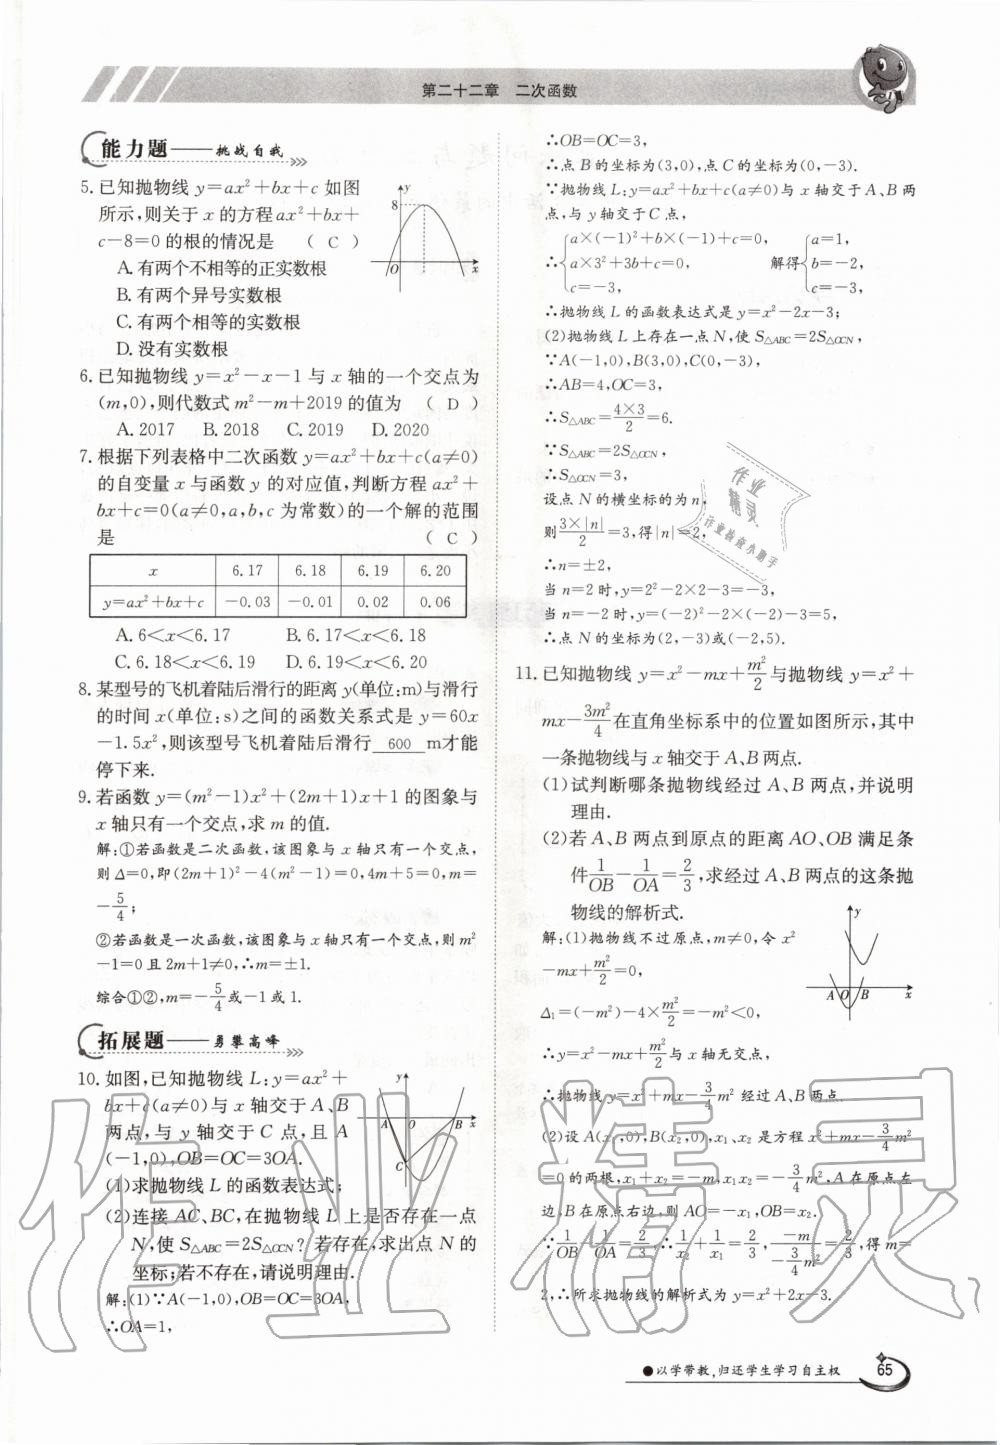 第二十二章　二次函数
能力题——挑战自我
5. 已知抛物线 y=ax²+bx+c 如图
所示,则关于 x 的方程 ax²+bx+
c-8=0 的根的情况是 ( C )
A. 有两个不相等的正实数根
B. 有两个异号实数根
C. 有两个相等的实数根
D. 没有实数根
y
8
O
x
6. 已知抛物线 y=x²-x-1 与 x 轴的一个交点为
(m,0),则代数式 m²-m+2019 的值为 ( D )
A. 2017 B. 2018 C. 2019 D. 2020
7. 根据下列表格中二次函数 y=ax²+bx+c(a≠0)
的自变量 x 与函数 y 的对应值,判断方程 ax²+
bx+c=0(a≠0,a,b,c 为常数)的一个解的范围
是 ( C )
x 6.17 6.18 6.19 6.20
y=ax²+bx+c -0.03 -0.01 0.02 0.06
A. 6<x<6.17 B. 6.17<x<6.18
C. 6.18<x<6.19 D. 6.19<x<6.20
8. 某型号的飞机着陆后滑行的距离 y(单位:m)与滑行
的时间 x(单位:s)之间的函数关系式是 y=60x
-1.5x²,则该型号飞机着陆后滑行 600 m才能
停下来.
9. 若函数 y=(m²-1)x²+(2m+1)x+1 的图象与
x 轴只有一个交点,求 m 的值.
解:①若函数是二次函数,该图象与 x 轴只有一个交点,
则 Δ=0,即(2m+1)²-4(m²-1)=0,4m+5=0,m=
-5/4;
②若函数是一次函数,该图象与 x 轴只有一个交点,则 m²
-1=0 且 2m+1≠0,∴m=±1.
综合①②,m=-5/4或-1或1.
拓展题——勇攀高峰
10. 如图,已知抛物线 L:y=ax²+
bx+c(a≠0)与 x 轴交于 A、B
两点,与 y 轴交于 C 点,且 A
(-1,0),OB=OC=3OA.
(1)求抛物线 L 的函数表达式;
(2)连接 AC、BC,在抛物线 L 上是否存在一点
N,使 S△ABC=2S△OCN? 若存在,求出点 N 的
坐标;若不存在,请说明理由.
y
A O B x
C
解:(1)∵A(-1,0),OB=OC=3OA,
∴OA=1,
∴OB=OC=3,
∴点 B 的坐标为(3,0),点 C 的坐标为(0,-3).
∵抛物线 L:y=ax²+bx+c(a≠0)与 x 轴交于 A、B 两
点,与 y 轴交于 C 点,
∴{a×(-1)²+b×(-1)+c=0, a×3²+3b+c=0, c=-3, 解得{a=1, b=-2, c=-3,
∴抛物线 L 的函数表达式是 y=x²-2x-3;
(2)抛物线 L 上存在一点 N,使 S△ABC=2S△OCN,
∵A(-1,0),B(3,0),C(0,-3),
∴AB=4,OC=3,
∴S△ABC=4×3/2=6.
∵S△ABC=2S△OCN,
∴S△OCN=3,
设点 N 的横坐标的为 n,
则3×|n|/2=3,得|n|=2,
∴n=±2,
当 n=2 时,y=2²-2×2-3=-3,
当 n=-2 时,y=(-2)²-2×(-2)-3=5,
∴点 N 的坐标为(2,-3)或(-2,5).
11. 已知抛物线 y=x²-mx+m²/2与抛物线 y=x²+
mx-3m²/4在直角坐标系中的位置如图所示,其中
一条抛物线与 x 轴交于 A、B 两点.
(1)试判断哪条抛物线经过 A、B 两点,并说明
理由.
(2)若 A、B 两点到原点的距离 AO、OB 满足条
件1/OB-1/OA=2/3,求经过 A、B 两点的这条抛
物线的解析式.
y
A O B x
解:(1)抛物线不过原点,m≠0,令 x²
-mx+m²/2=0,
Δ₁=(-m²)-4×m²/2=-m²<0,
∴y=x²-mx+m²/2与 x 轴无交点,
∴抛物线 y=x²+mx-3/4m² 经过 A、B 两点.
(2)设 A(x₁,0),B(x₂,0),x₁、x₂ 是方程 x²+mx-3/4m²
=0 的两根,x₁+x₂=-m,x₁x₂=-3/4m²,A 在原点左
边,B 在原点右边,则 AO=-x₁,OB=x₂.
∵1/OB-1/OA=2/3,∴1/x₂+1/x₁=2/3,-m/(-3/4m²)=2/3,得 m=
2,∴所求抛物线的解析式为 y=x²+2x-3.
作业精灵
作业检查小助手
作业精灵
●以学带教,归还学生学习自主权
65